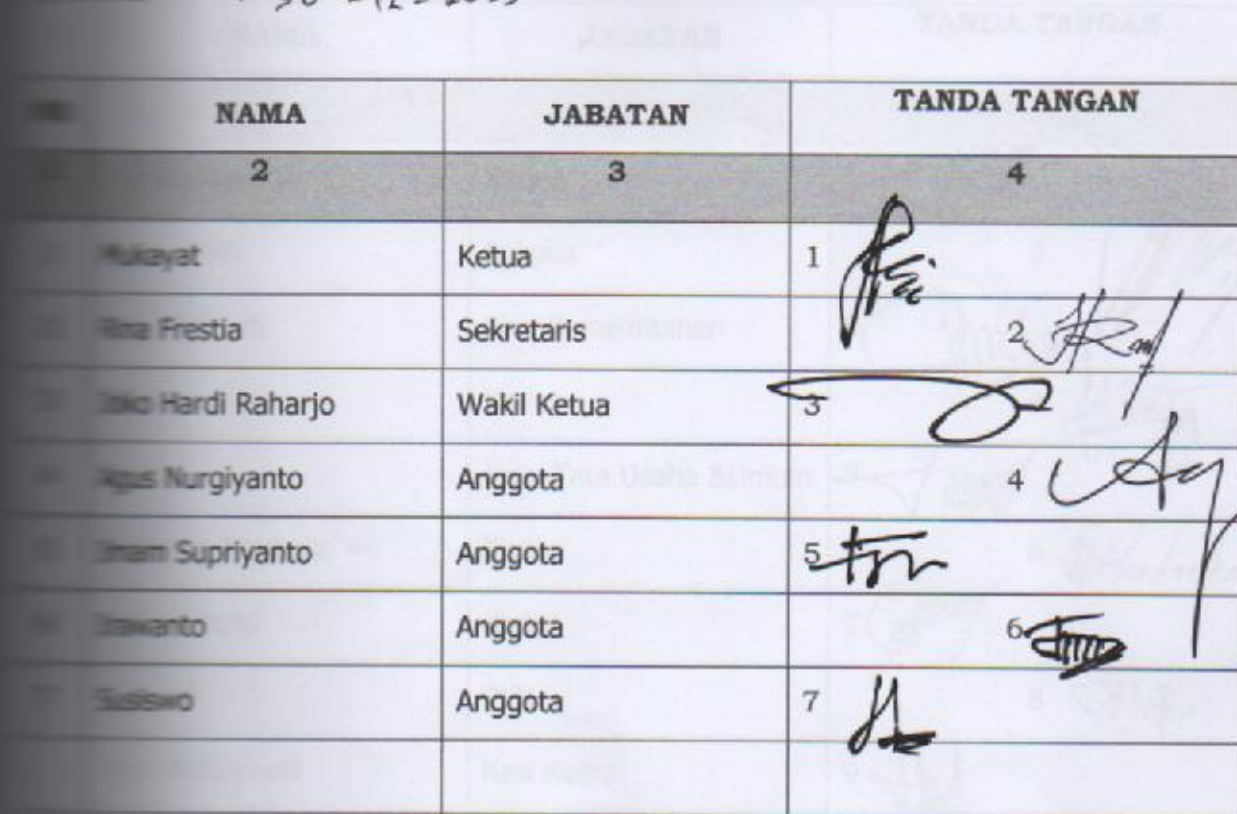 NAMA JABATAN TANDA TANGAN
2 3 4
Mukayat Ketua 1
Rina Frestia Sekretaris 2
Joko Hardi Raharjo Wakil Ketua 3
Agus Nurgiyanto Anggota 4
Imam Supriyanto Anggota 5
Irawanto Anggota 6
Susiswo Anggota 7